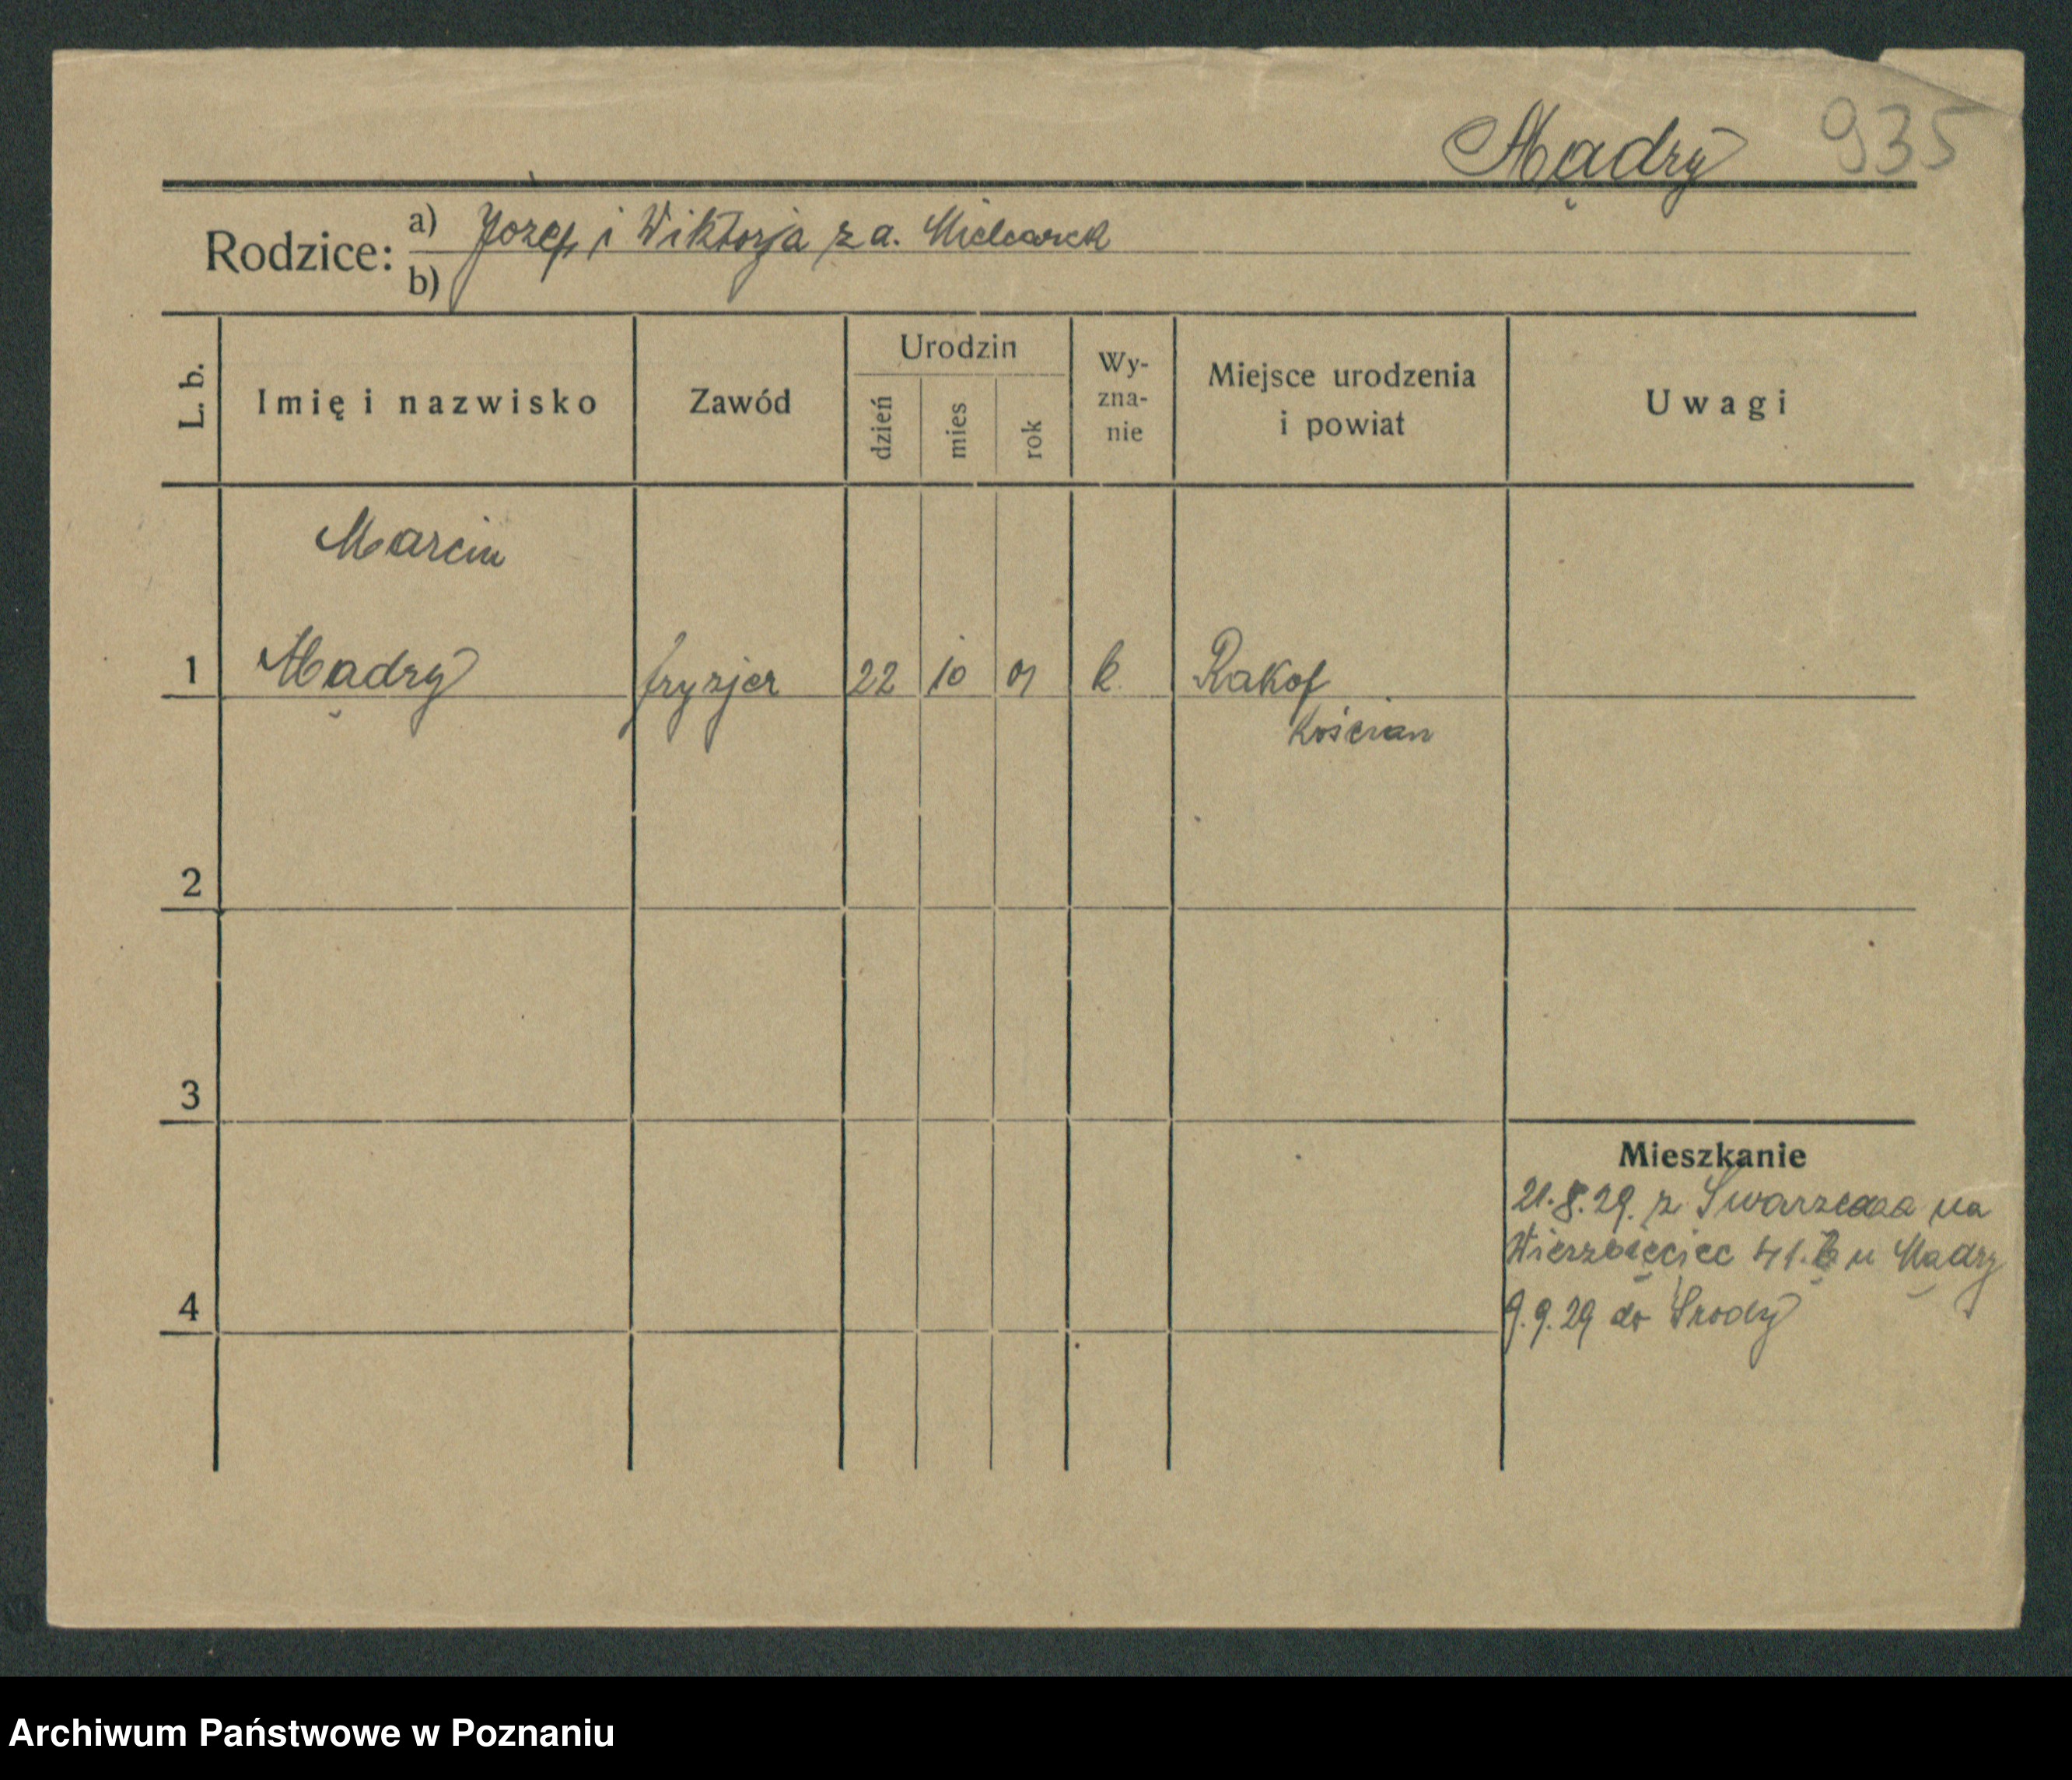 Mądry 935
Rodzice: a) Józef i Wiktorja z d. Mielcarek
b)
L. b.
Imię i nazwisko
Zawód
Urodzin
dzień
mies
rok
Wy-
zna-
nie
Miejsce urodzenia
i powiat
Uwagi
Marcin
1 Mądry fryzjer 22 10 01 k. Rakof
Kościan
2
3
Mieszkanie
21.8.29. z Swarzędza na
Wierzbięcice 41. u Mądry
9.9.29 do Środy
4
Archiwum Państwowe w Poznaniu